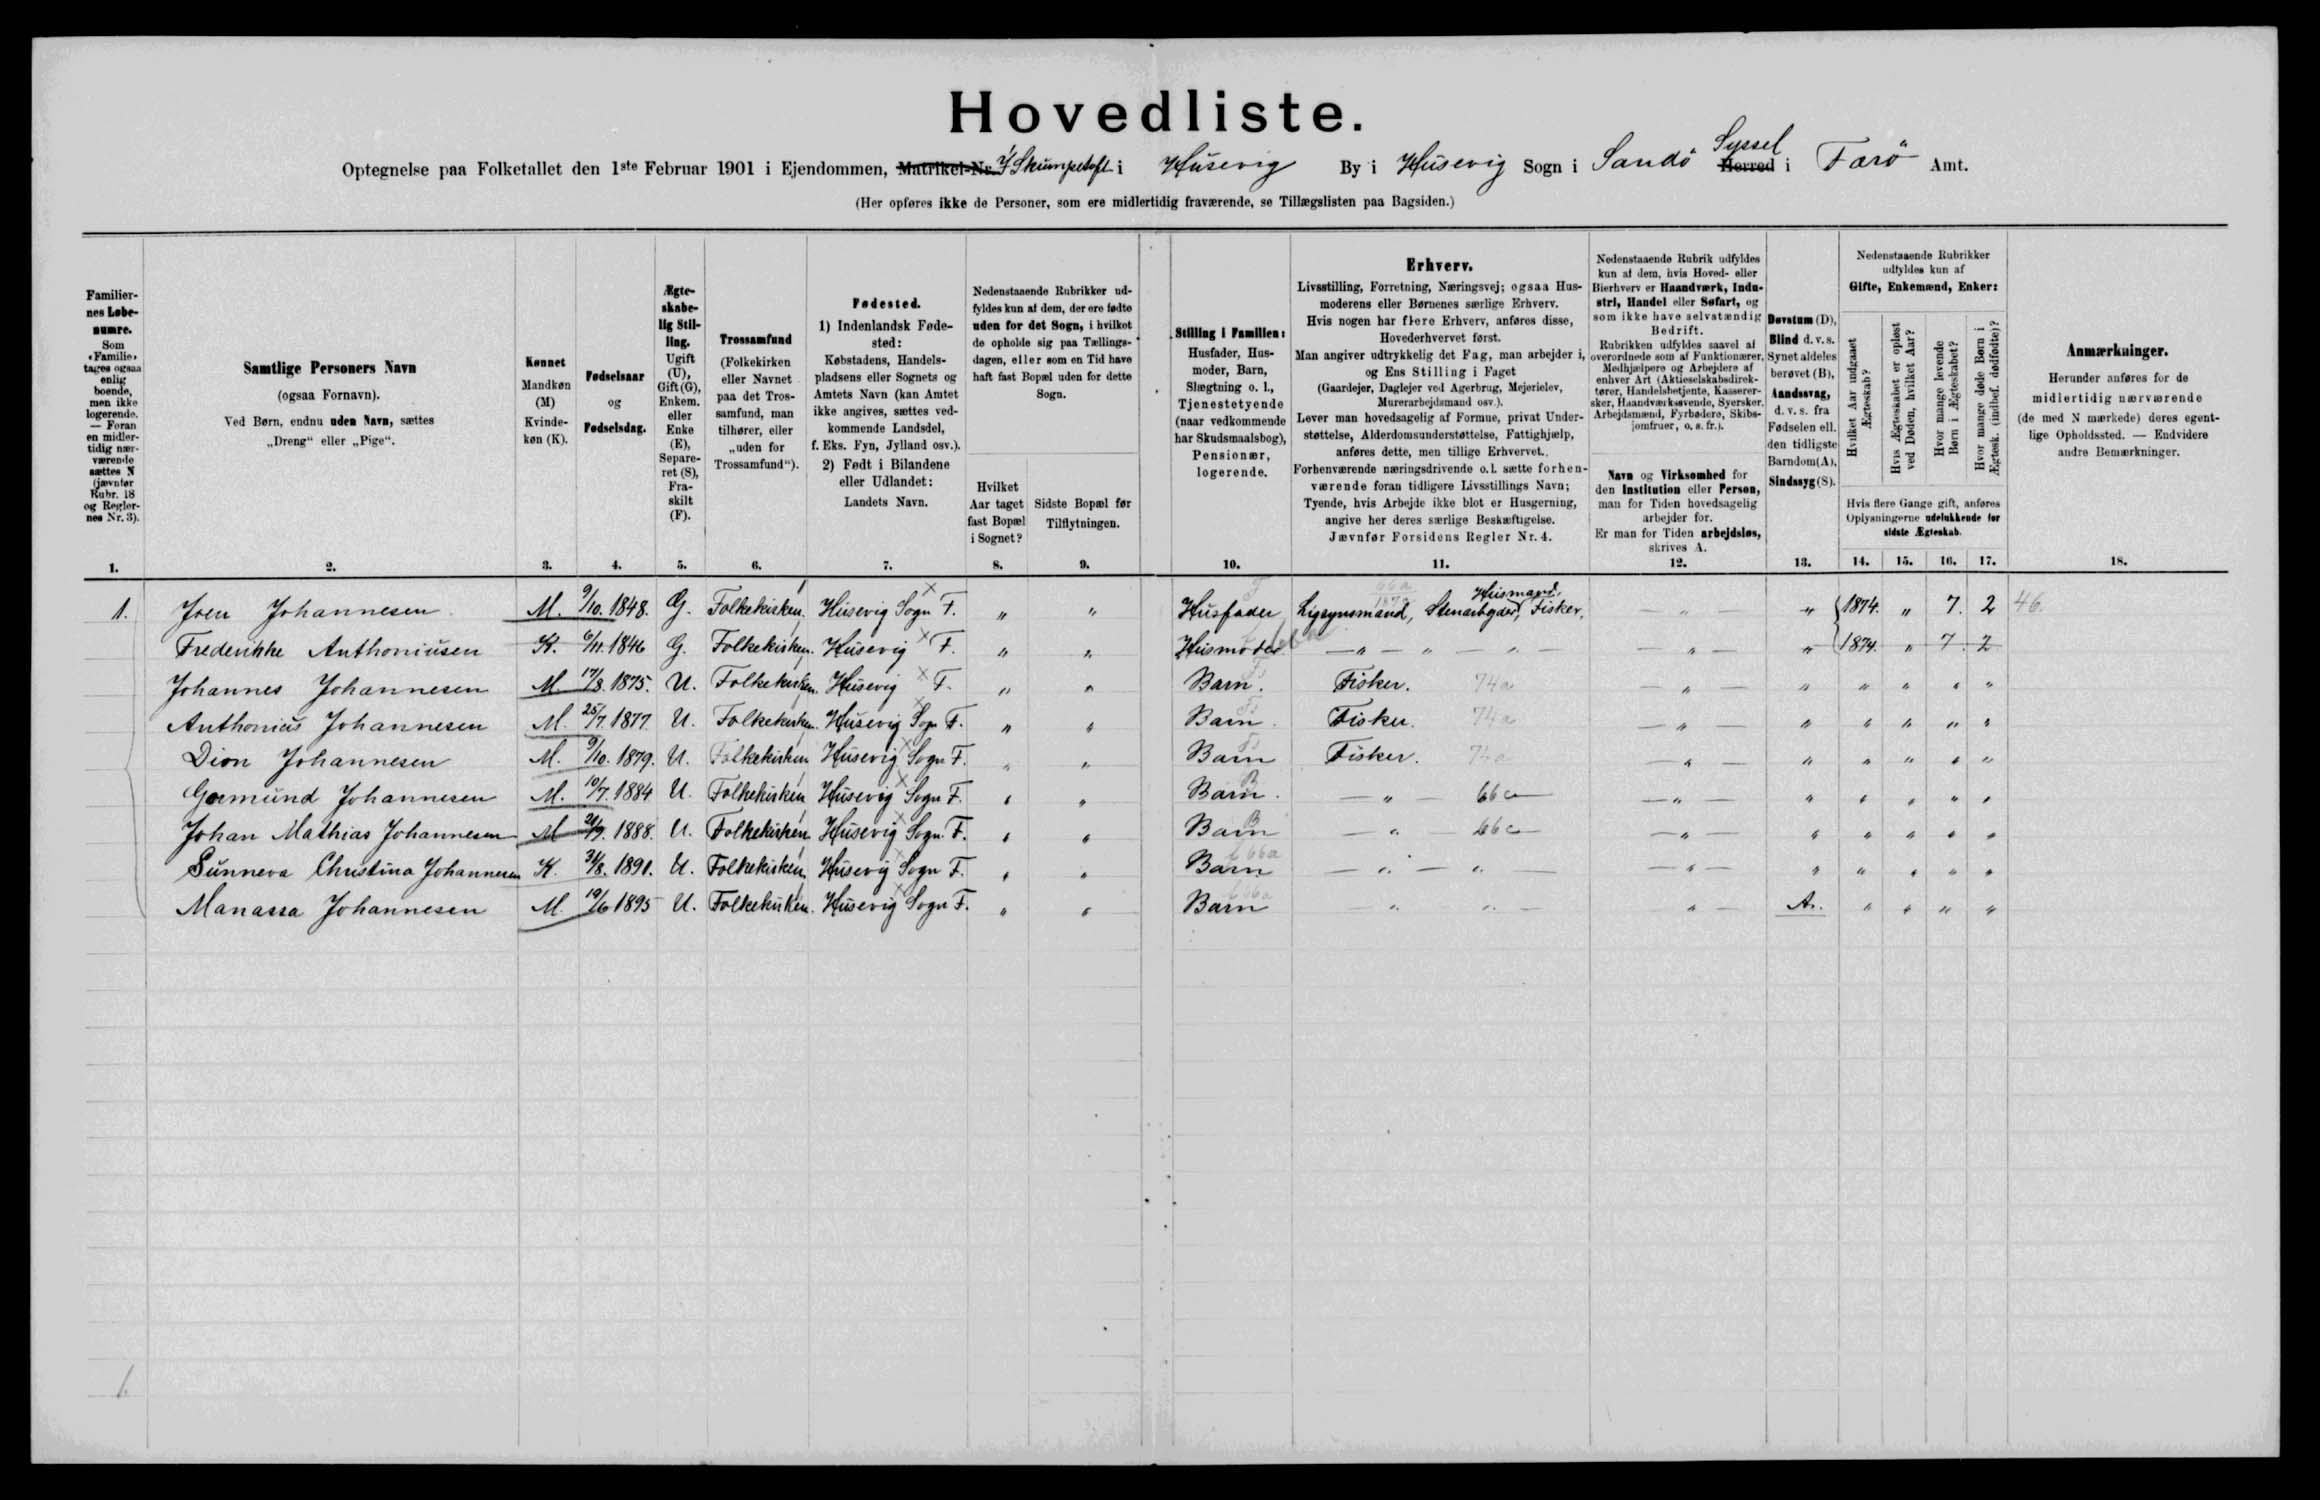 Hovedliste.
Optegnelse paa Folketallet den 1ste Februar 1901 i Ejendommen, Matrikel-Nr. I Skumpetoft i Húsevig By i Húsevig Sogn i Sandö Herred Syssel i Færö Amt.
(Her opføres ikke de Personer, som ere midlertidig fraværende, se Tillægslisten paa Bagsiden.)
Familiernes Løbenumre.
Som «Familie» tages ogsaa enlig boende, men ikke logerende. — Foran en midlertidig nærværende sættes N (jævnfør Rubr. 18 og Reglernes Nr. 3).
1.
Samtlige Personers Navn
(ogsaa Fornavn).
Ved Børn, endnu uden Navn, sættes „Dreng“ eller „Pige“.
2.
Kønnet
Mandkøn (M)
Kvindekøn (K).
3.
Fødselsaar
og
Fødselsdag.
4.
Ægteskabelig Stilling.
Ugift (U), Gift (G), Enkem. eller Enke (E), Separeret (S), Fraskilt (F).
5.
Trossamfund
(Folkekirken eller Navnet paa det Trossamfund, man tilhører, eller „uden for Trossamfund“).
6.
Fødested.
1) Indenlandsk Fødested:
Købstadens, Handelspladsens eller Sognets og Amtets Navn (kan Amtet ikke angives, sættes vedkommende Landsdel, f. Eks. Fyn, Jylland osv.).
2) Født i Bilandene eller Udlandet:
Landets Navn.
7.
Nedenstaaende Rubrikker udfyldes kun af dem, der ere fødte uden for det Sogn, i hvilket de opholde sig paa Tællingsdagen, eller som en Tid have haft fast Bopæl uden for dette Sogn.
Hvilket Aar taget fast Bopæl i Sognet?
8.
Sidste Bopæl før Tilflytningen.
9.
Stilling i Familien:
Husfader, Husmoder, Barn, Slægtning o. l., Tjenestetyende (naar vedkommende har Skudsmaalsbog), Pensionær, logerende.
10.
Erhverv.
Livsstilling, Forretning, Næringsvej; ogsaa Husmoderens eller Børnenes særlige Erhverv.
Hvis nogen har flere Erhverv, anføres disse, Hovederhvervet først.
Man angiver udtrykkelig det Fag, man arbejder i, og Ens Stilling i Faget
(Gaardejer, Daglejer ved Agerbrug, Mejerielev, Murerarbejdsmand osv.).
Lever man hovedsagelig af Formue, privat Understøttelse, Alderdomsunderstøttelse, Fattighjælp, anføres dette, men tillige Erhvervet.
Forhenværende næringsdrivende o. l. sætte forhenværende foran tidligere Livsstillings Navn;
Tyende, hvis Arbejde ikke blot er Husgerning, angive her deres særlige Beskæftigelse.
Jævnfør Forsidens Regler Nr. 4.
11.
Nedenstaaende Rubrik udfyldes kun af dem, hvis Hoved- eller Bierhverv er Haandværk, Industri, Handel eller Søfart, og som ikke have selvstændig Bedrift.
Rubrikken udfyldes saavel af overordnede som af Funktionærer, Medhjælpere og Arbejdere af enhver Art (Aktieselskabsdirektører, Handelsbetjente, Kasserersker, Haandværkssvende, Syersker, Arbejdsmænd, Fyrbødere, Skibsjomfruer, o. s. fr.).
Navn og Virksomhed for den Institution eller Person, man for Tiden hovedsagelig arbejder for.
Er man for Tiden arbejdsløs, skrives A.
12.
Døvstum (D), Blind d. v. s. Synet aldeles berøvet (B), Aandssvag, d. v. s. fra Fødselen ell. den tidligste Barndom (A), Sindssyg (S).
13.
Nedenstaaende Rubrikker udfyldes kun af
Gifte, Enkemænd, Enker:
Hvilket Aar indgaaet Ægteskab?
Hvis Ægteskabet er opløst ved Døden, hvilket Aar?
Hvor mange levende Børn i Ægteskabet?
Hvor mange døde Børn i Ægtesk. (indbef. dødfødte)?
Hvis flere Gange gift, anføres Oplysningerne udelukkende for sidste Ægteskab.
14. 15. 16. 17.
Anmærkninger.
Herunder anføres for de midlertidig nærværende (de med N mærkede) deres egentlige Opholdssted. — Endvidere andre Bemærkninger.
18.
1. Joen Johannesen. M. 9/10. 1848. G. Folkekirken. Húsevig Sogn F. „ „ Húsfader Ligsynsmand, Stenarbejder, Húsmand, Fisker. — „ — „ 1874. „ 7. 2 46.
Frederikke Anthoniúsen K. 6/11. 1846 G. Folkekirken. Húsevig F. „ „ Húsmoder — „ — „ — „ — — „ — „ 1874. „ 7. 2
Johannes Johannesen M. 17/8. 1875. U. Folkekirken. Húsevig F. „ „ Barn. Fisker. 74a — „ — „ „ „ „ „
Anthoniús Johannesen M. 25/7 1877. U. Folkekirken. Húsevig Sogn F. „ „ Barn. Fisker. 74a — „ — „ „ „ „ „
Dion Johannesen M. 9/10. 1879. U. Folkekirken Húsevig Sogn F. „ „ Barn Fisker. 74a — „ — „ „ „ „ „
Gormúnd Johannesen M. 10/7. 1884 U. Folkekirken Húsevig Sogn F. „ „ Barn. — „ — 66c — „ — „ „ „ „ „
Johan Mathias Johannesen M 21/9. 1888. U. Folkekirken Húsevig Sogn F. „ „ Barn — „ — 66c — „ — „ „ „ „ „
Súnneva Christina Johannesen K. 31/8. 1891. U. Folkekirken. Húsevig Sogn F. „ „ Barn — „ — „ — — „ — „ „ „ „ „
Manassa Johannesen M. 19/6 1895 U. Folkekirken. Húsevig Sogn F. „ „ Barn — „ „ — „ — A. „ „ „ „
1.